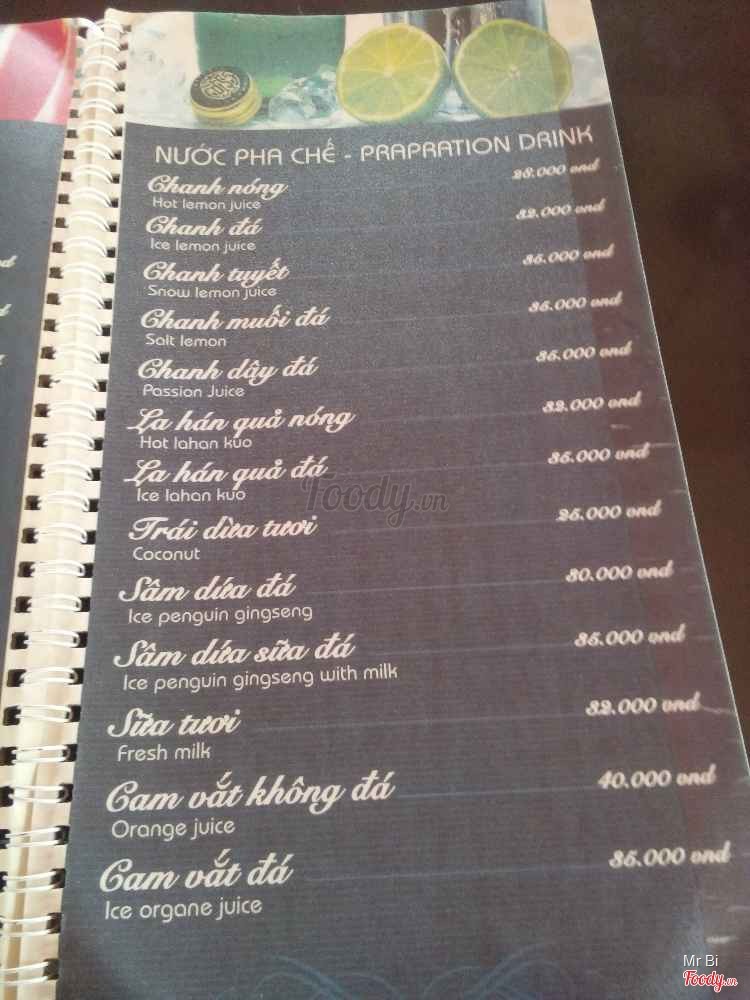 NƯỚC PHA CHẾ - PRAPRATION DRINK
Chanh nóng 28.000 vnd
Hot lemon juice
Chanh đá 32.000 vnd
Ice lemon juice
Chanh tuyết 35.000 vnd
Snow lemon juice
Chanh muối đá 35.000 vnd
Salt lemon
Chanh dây đá 35.000 vnd
Passion Juice
La hán quả nóng 32.000 vnd
Hot lahan kuo
La hán quả đá 35.000 vnd
Ice lahan kuo
Foody.vn
Trái dừa tươi 25.000 vnd
Coconut
Sâm dứa đá 30.000 vnd
Ice penguin gingseng
Sâm dứa sữa đá 35.000 vnd
Ice penguin gingseng with milk
Sữa tươi 32.000 vnd
Fresh milk
Cam vắt không đá 40.000 vnd
Orange juice
Cam vắt đá 35.000 vnd
Ice organe juice
Mr Bi
Foody.vn